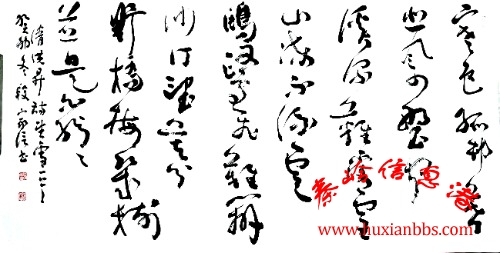 寒色孤村暮
悲风四野闻
溪深难受雪
山冻不流云
鸥鹭飞难辨
沙汀望莫分
野桥梅几树
并是白纷纷
清洪昇诗
秦岭信息港
www.huxianbbs.com